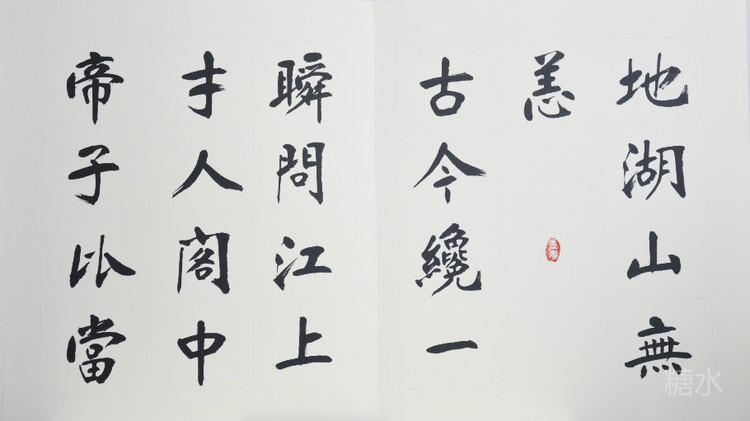 地湖山無
恙
古今纔一
瞬問江上
才人閣中
帝子比當
糖水